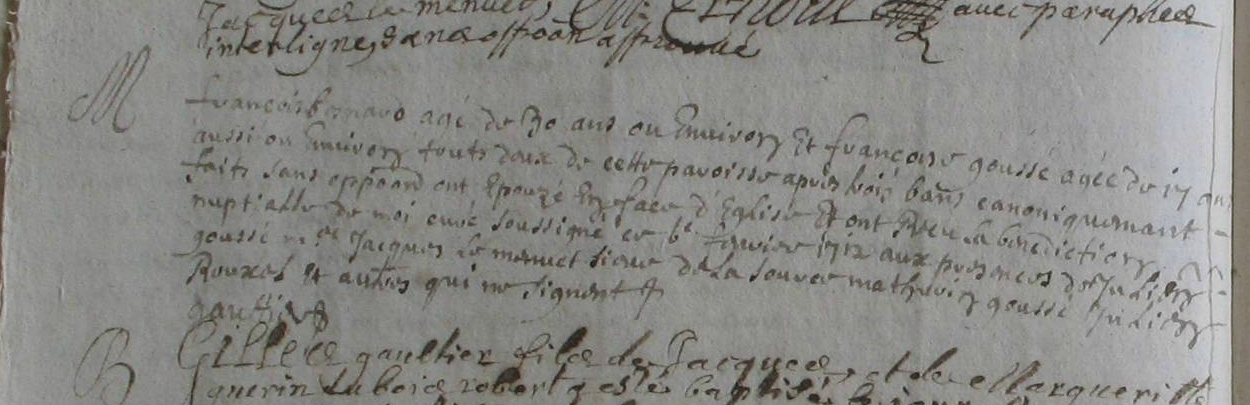 Jacques le menuet, avec paraphes
interligne sans oppoõn approuvé
M
françois bernard agé de 30 ans ou Environ Et françoise goussé agée de 17 ans
aussi ou Environ touts deux de cette paroisse apres trois bans canoniquement
faits sans oppoõn ont Epouzé En face d'Eglise Et ont Receu la benediction
nuptialle de moi curé soussigné ce 6e fevrier 1712 aux presences de Julien
goussé Jacques Le menuet sieur de La source mathurin goussé Julien
Rouxel Et autres qui ne signent
gaultier
B
Gilles gaultier fils de Jacques, et de Margueritte
guerin du bois robert a esté baptisé